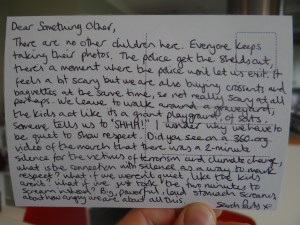 Dear Something Other,
There are no other children here. Everyone keeps
taking their photos. The police get the shields out,
there's a moment where the police won't let us exit. It
feels a bit scary but we are also buying crisps and
baguettes at the same time, so not really scary at all
perhaps. We leave to walk around a graveyard,
the kids act like it's a giant playground, of sorts.
Someone tells us to "SHHH!" I wonder why we have to
be quiet to show respect. Did you see on a 360.org
video of the march that there was a 2-minute
silence for the victims of terrorism and climate change,
what is the connection with silence as a way to mark
respect? What if we weren't quiet, like the kids
aren't? What if we just took the two minutes to
scream instead? Big, powerful, loud stomach screams
about how angry we are about all this.